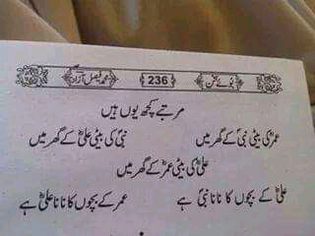 بوئے سخن 236 محمد فیصل آزاد
مرتبے کچھ یوں ہیں
عمرؓ کی بیٹی نبیؐ کے گھر میں نبیؐ کی بیٹی علیؓ کے گھر میں
علیؓ کی بیٹی عمرؓ کے گھر میں
علیؓ کے بچوں کا نانا نبیؐ ہے عمرؓ کے بچوں کا نانا علیؓ ہے